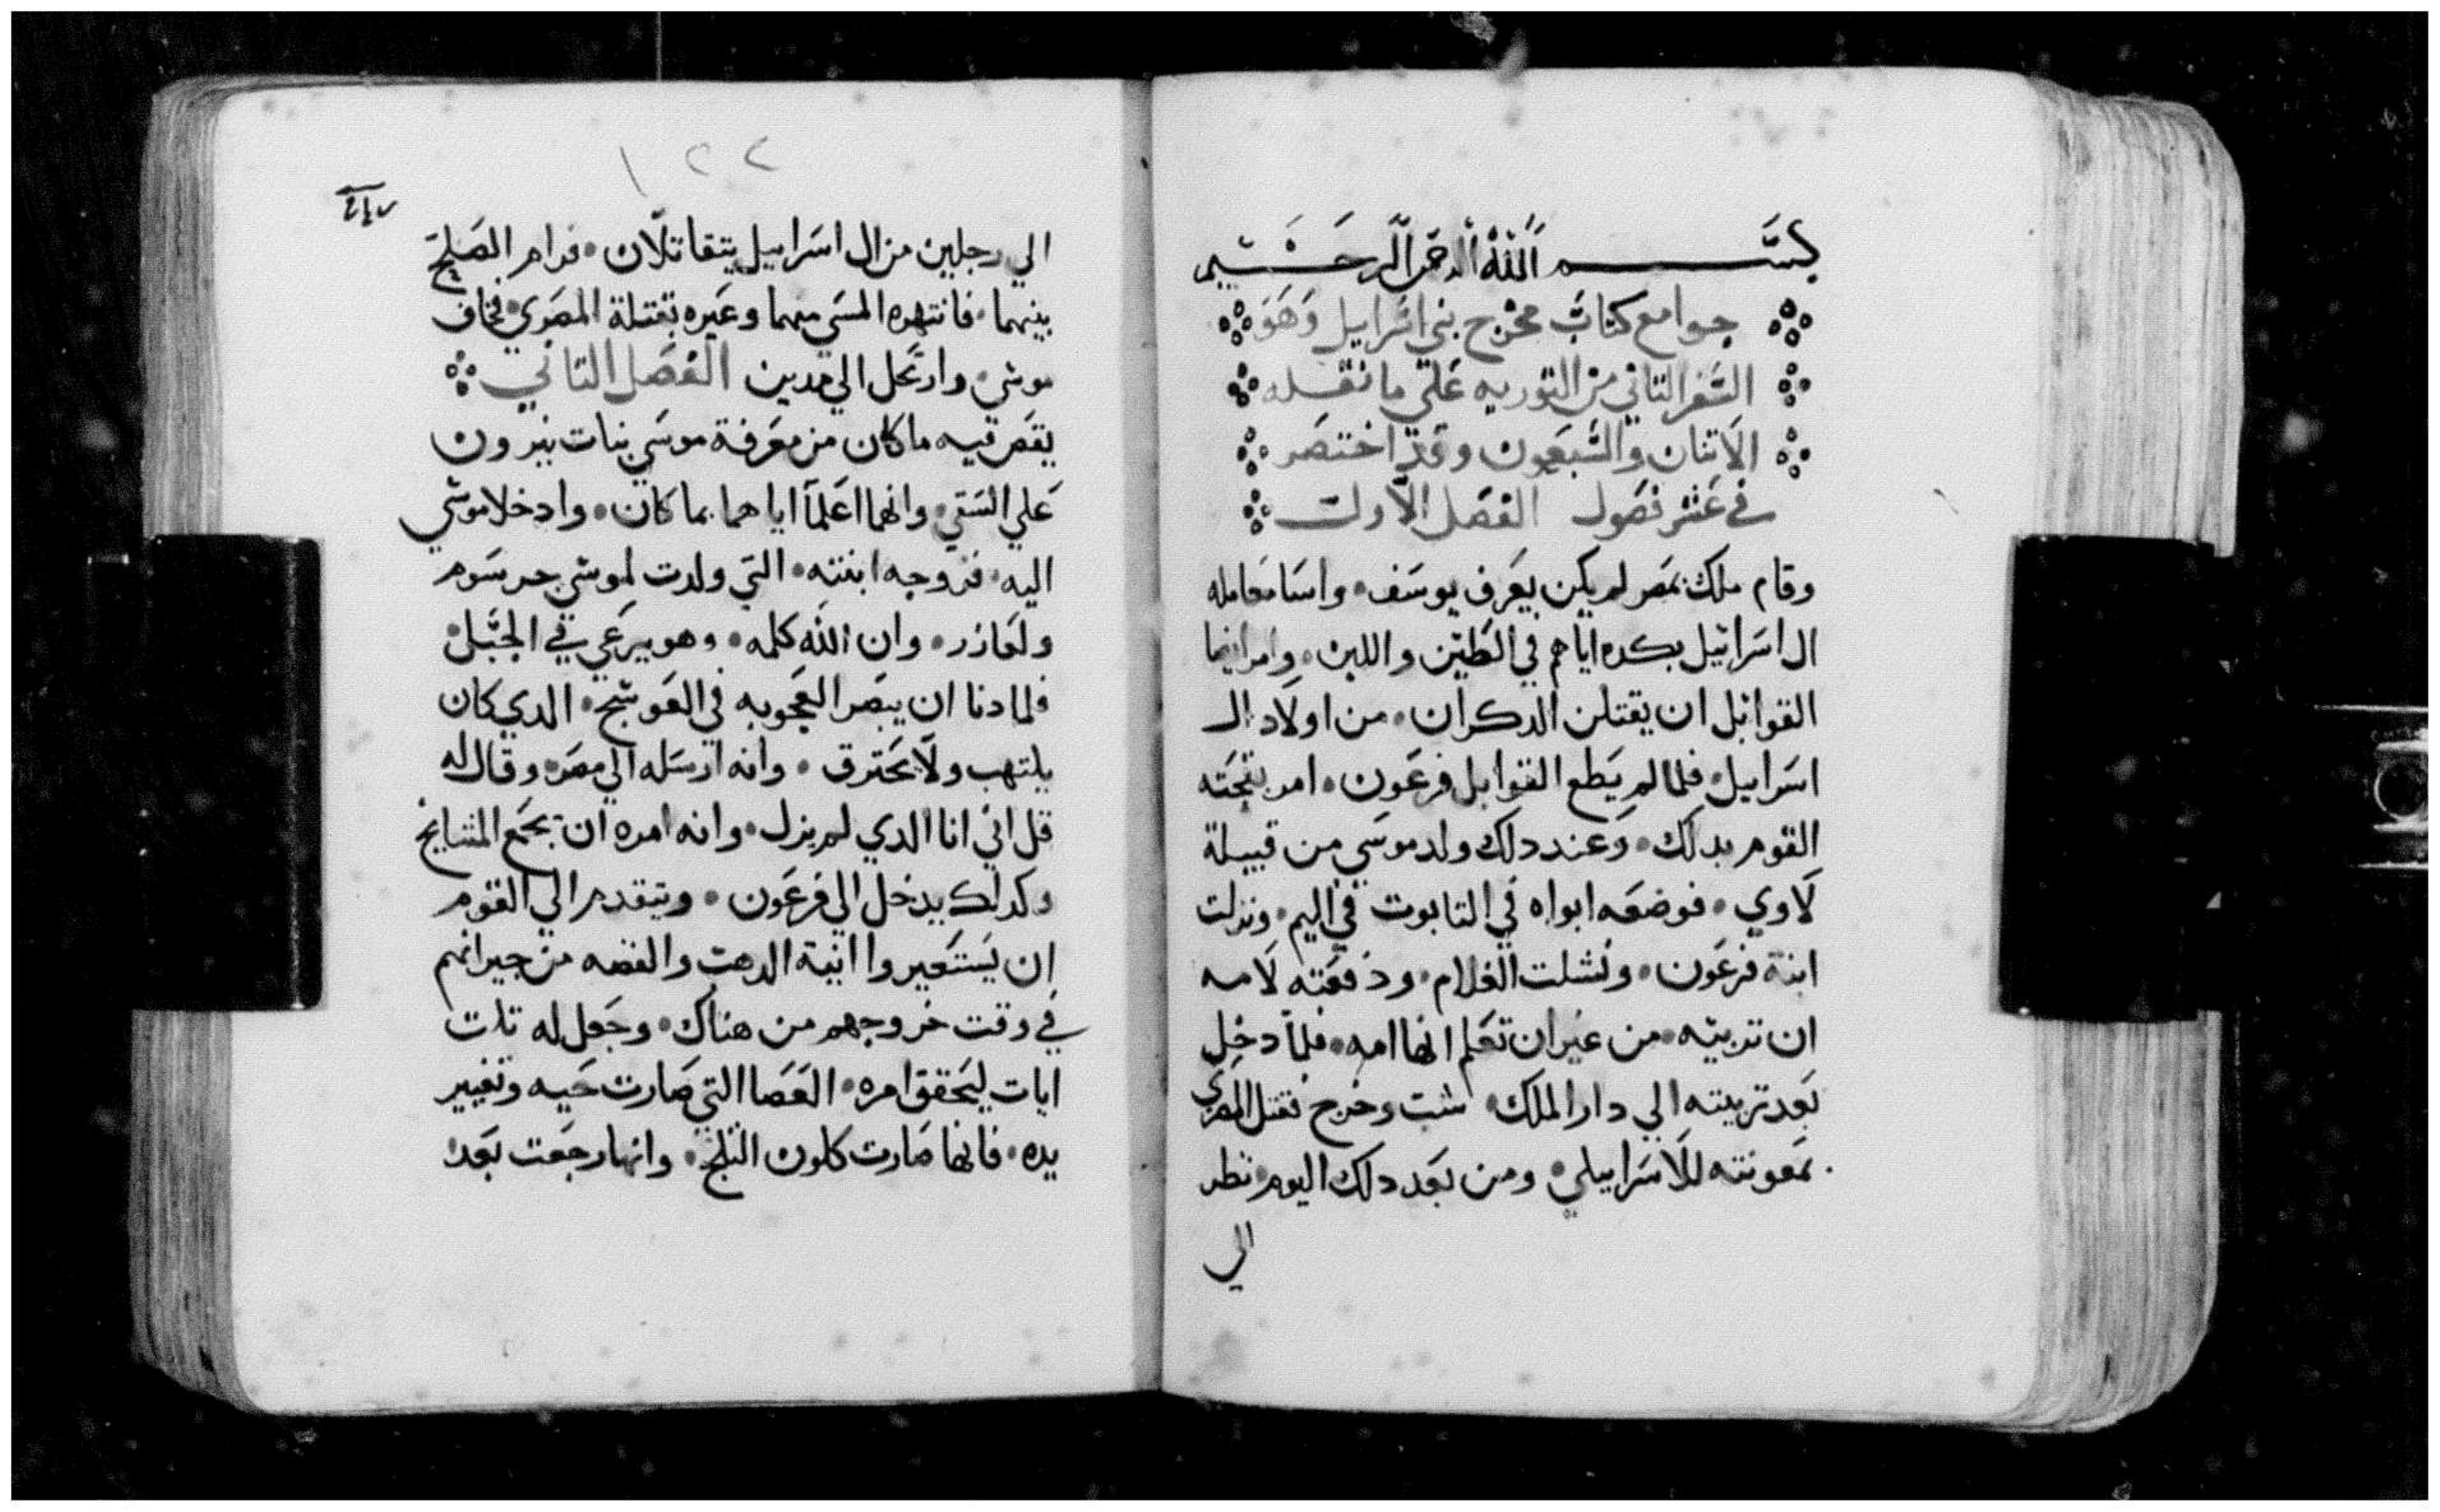 بسم الله الرحمن الرحيم
جوامع كتاب مخرج بني اسرايل وهو
السفر التاني من التوريه علي ما نقله
الاتنان والسبعون وقد اختصر
في عشر فصول الفصل الاول
وقام ملك بمصر لم يكن يعرف يوسف • واسا معامله
ال اسرائيل بكده اياهم في الطين واللبن • وامر ايضا
القوابل ان يقتلن الدكران • من اولاد ال
اسرابيل • فلما لم يطع القوابل فرعون • امر
القوم بدلك • وعند دلك ولد موسي من قبيلة
لاوي • فوضعه ابواه في التابوت في اليم • ونزلت
ابنة فرعون • ونشلت الغلام • ودفعته لامه
ان تربيه • من غير ان تعلم انها امه • فلما دخل
بعد تربيته الي دار الملك • شب وخرج فقتل المصري
بمعونته للاسرابيلي • ومن بعد دلك اليوم نظر
الي
١٢٢
الي رجلين من ال اسرابيل يتقاتلان • فرام الصلح
بينهما • فانتهره المسي منهما وعيره بقتلة المصري • فخاف
موسي • وارتحل الي مدين الفصل التاني
يقص فيه ما كان من معرفة موسي بنات يترون
علي السقي • وانهما اعلما اباهما بما كان • وادخلا موسي
اليه • فزوجه ابنته • التي ولدت لموسي جرسوم
ولعازر • وان الله كلمه • وهو يرعي في الجبل
فلما دنا ان يبصر العجوبه في العوسج • الدي كان
يلتهب ولا يحترق • وانه ارسله الي مصر • وقال له
قل اني انا الدي لم يزل • وانه امره ان يجمع المشايخ
وكدلك يدخل الي فرعون • ويتقدم الي القوم
ان يستعيروا انية الدهب والفضه من جيرانهم
في وقت خروجهم من هناك • وجعل له تلت
ايات ليحقق امره • العصا التي صارت حيه وتغيير
يده • فانها صارت كلون التلج • وانها رجعت بعد